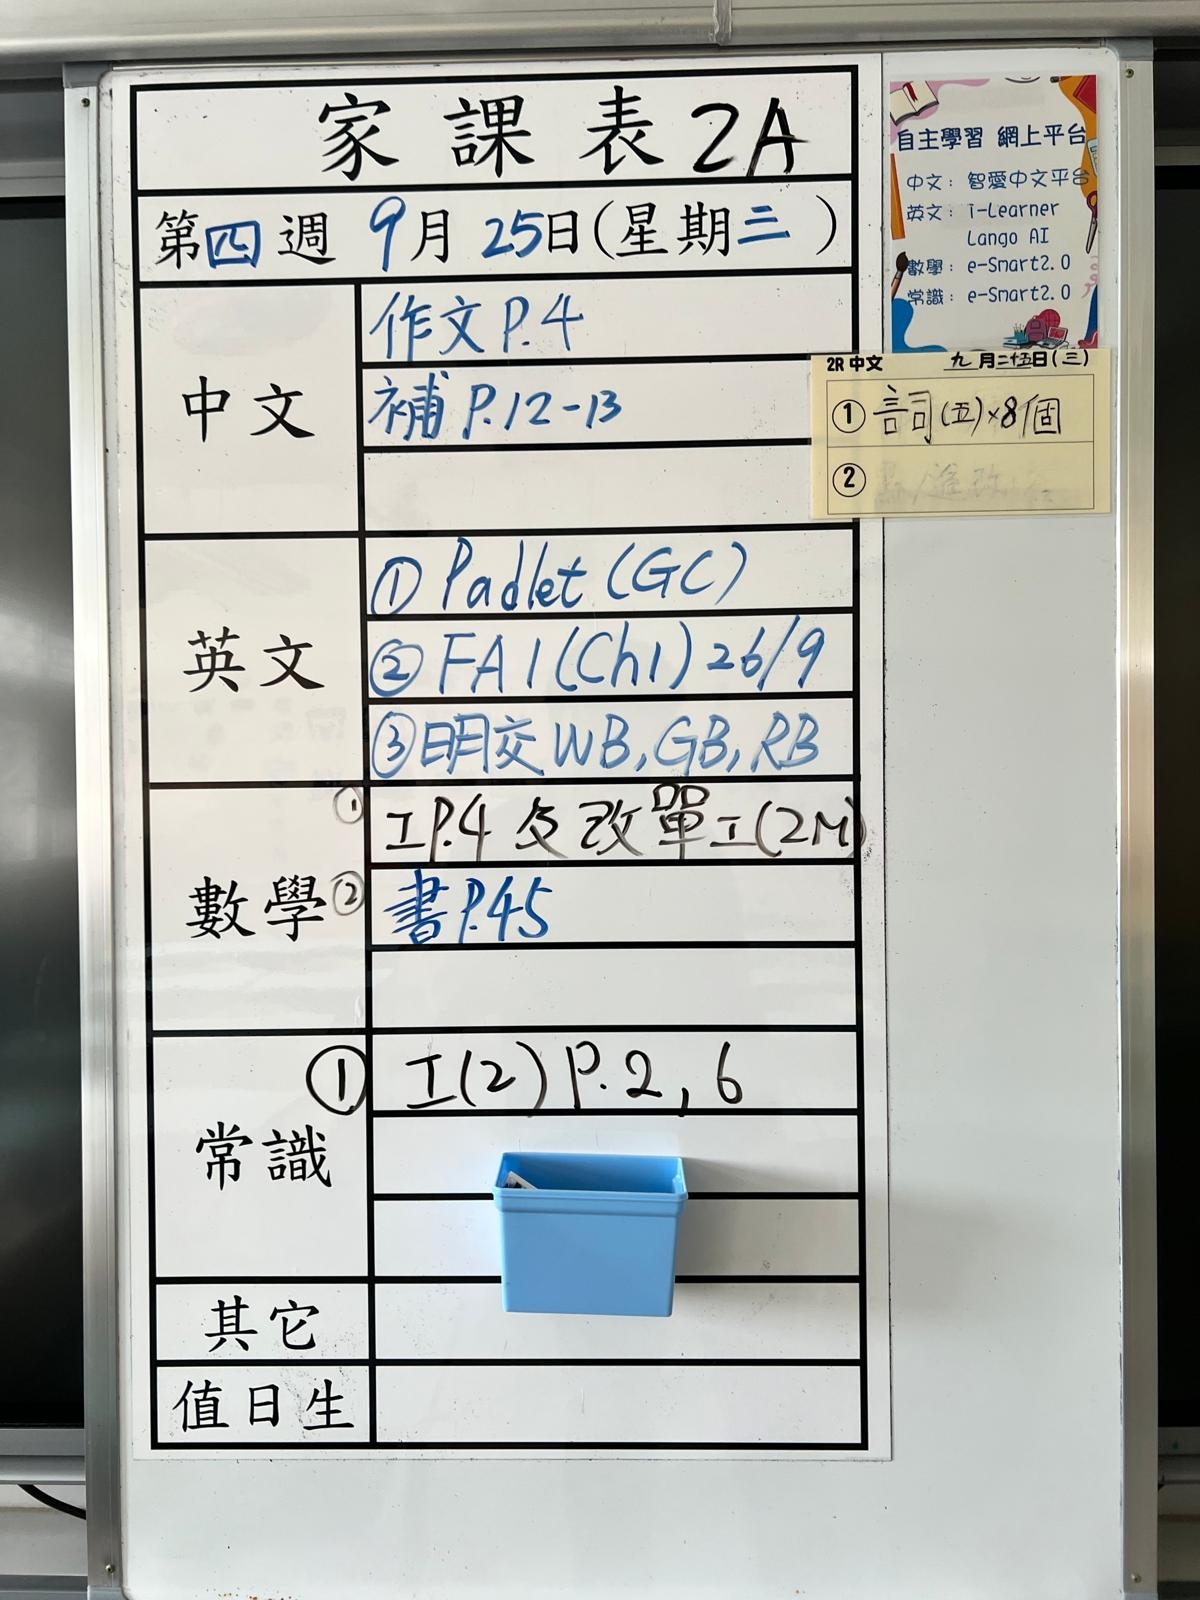 家課表 2A
第四週 9月25日(星期三)
中文
作文 P.4
補 P.12-13
英文
① Padlet (GC)
② FA1 (Ch1) 26/9
③ 明交 WB, GB, RB
數學
① 工P.4 及改單工(2M)
② 書 P.45
常識
① 工(2) P.2, 6
其它
值日生
自主學習 網上平台
中文：智愛中文平台
英文：i-Learner
Lango AI
數學：e-Smart2.0
常識：e-Smart2.0
2R 中文 九月二十五日(三)
① 詞(五)×8個
②